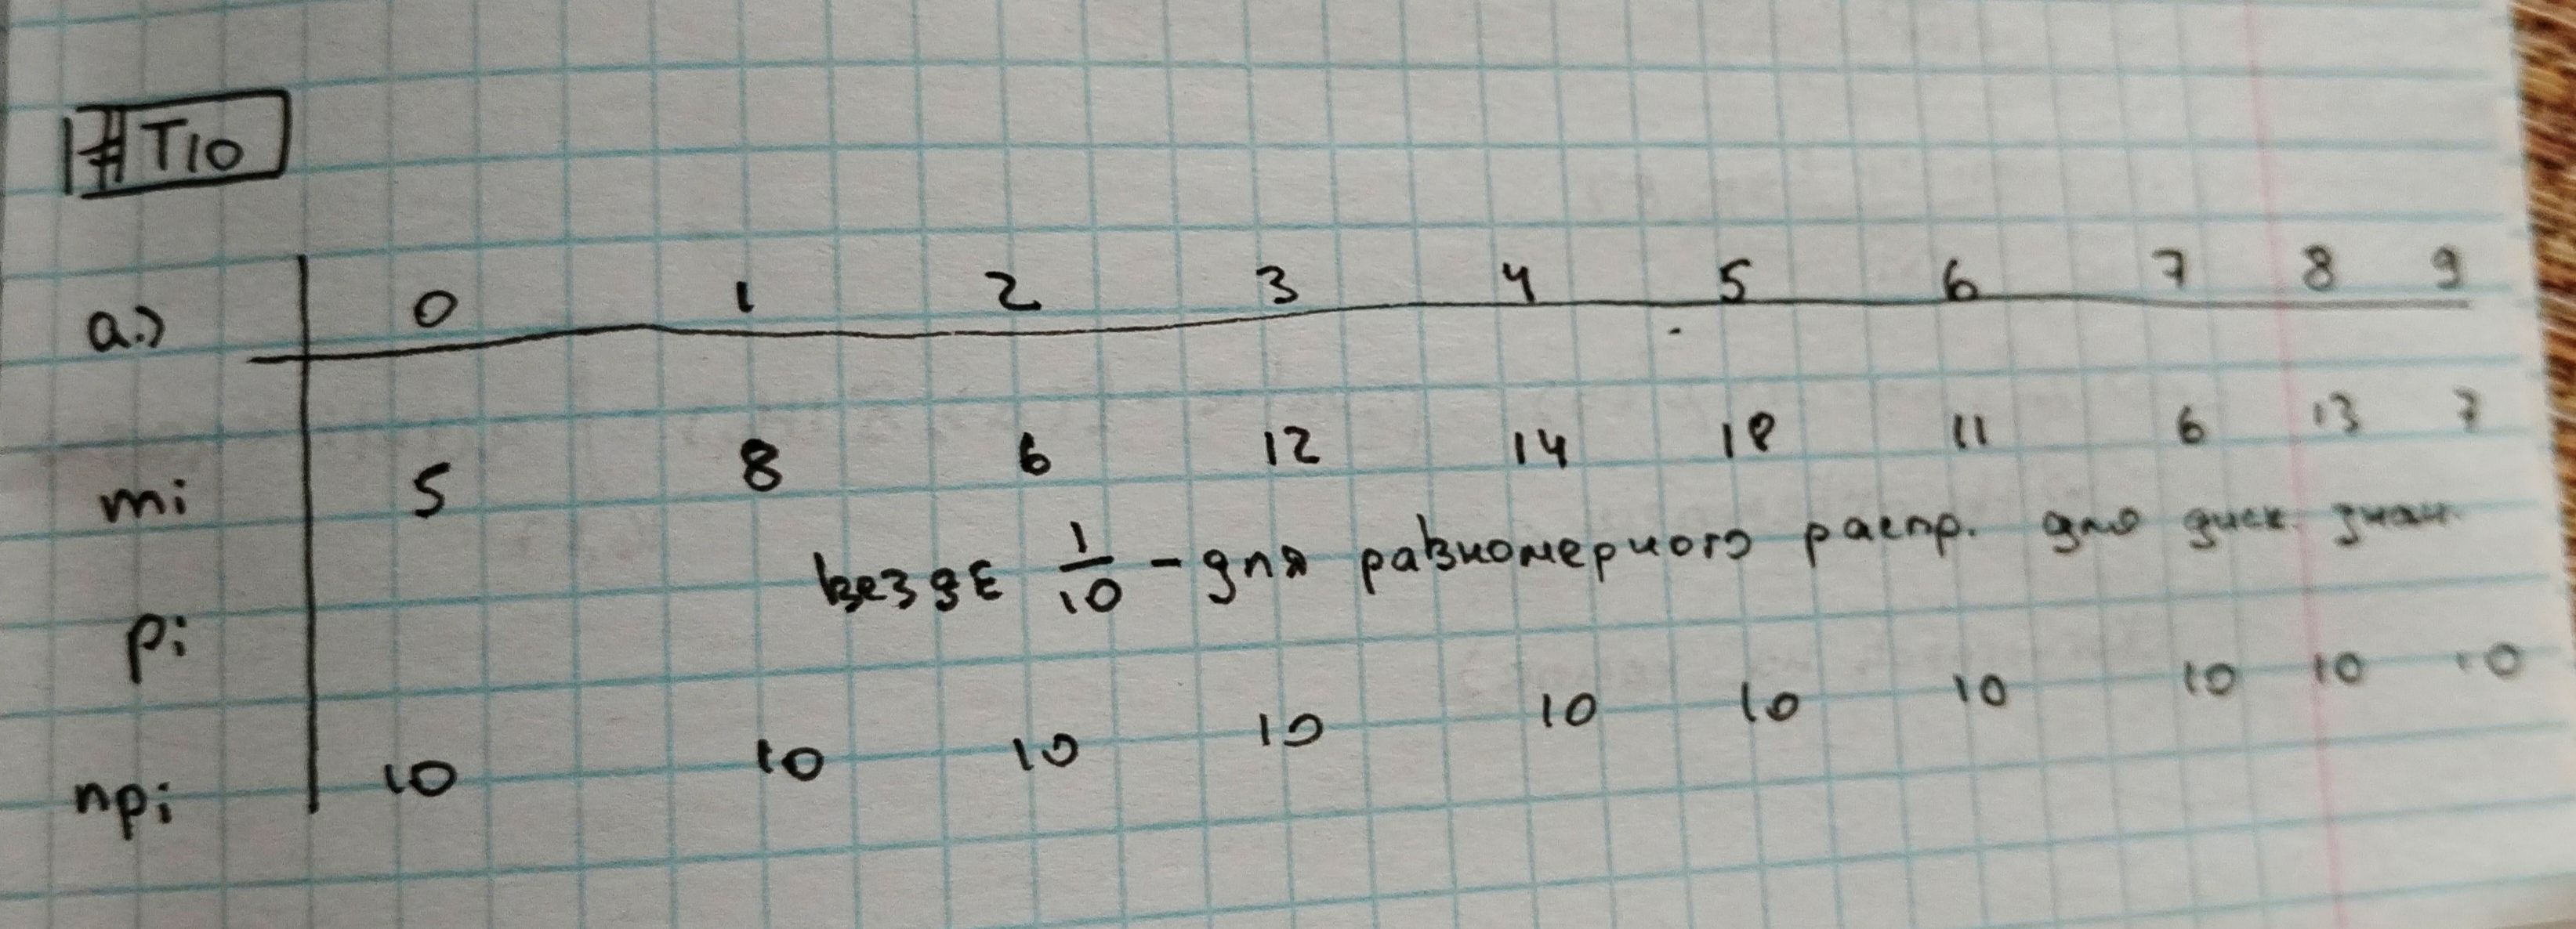 #T10
a.) 0 1 2 3 4 5 6 7 8 9
mi 5 8 6 12 14 18 11 6 13 7
pi везде 1/10 - для равномерного распр. для диск. знач.
npi 10 10 10 10 10 10 10 10 10 10